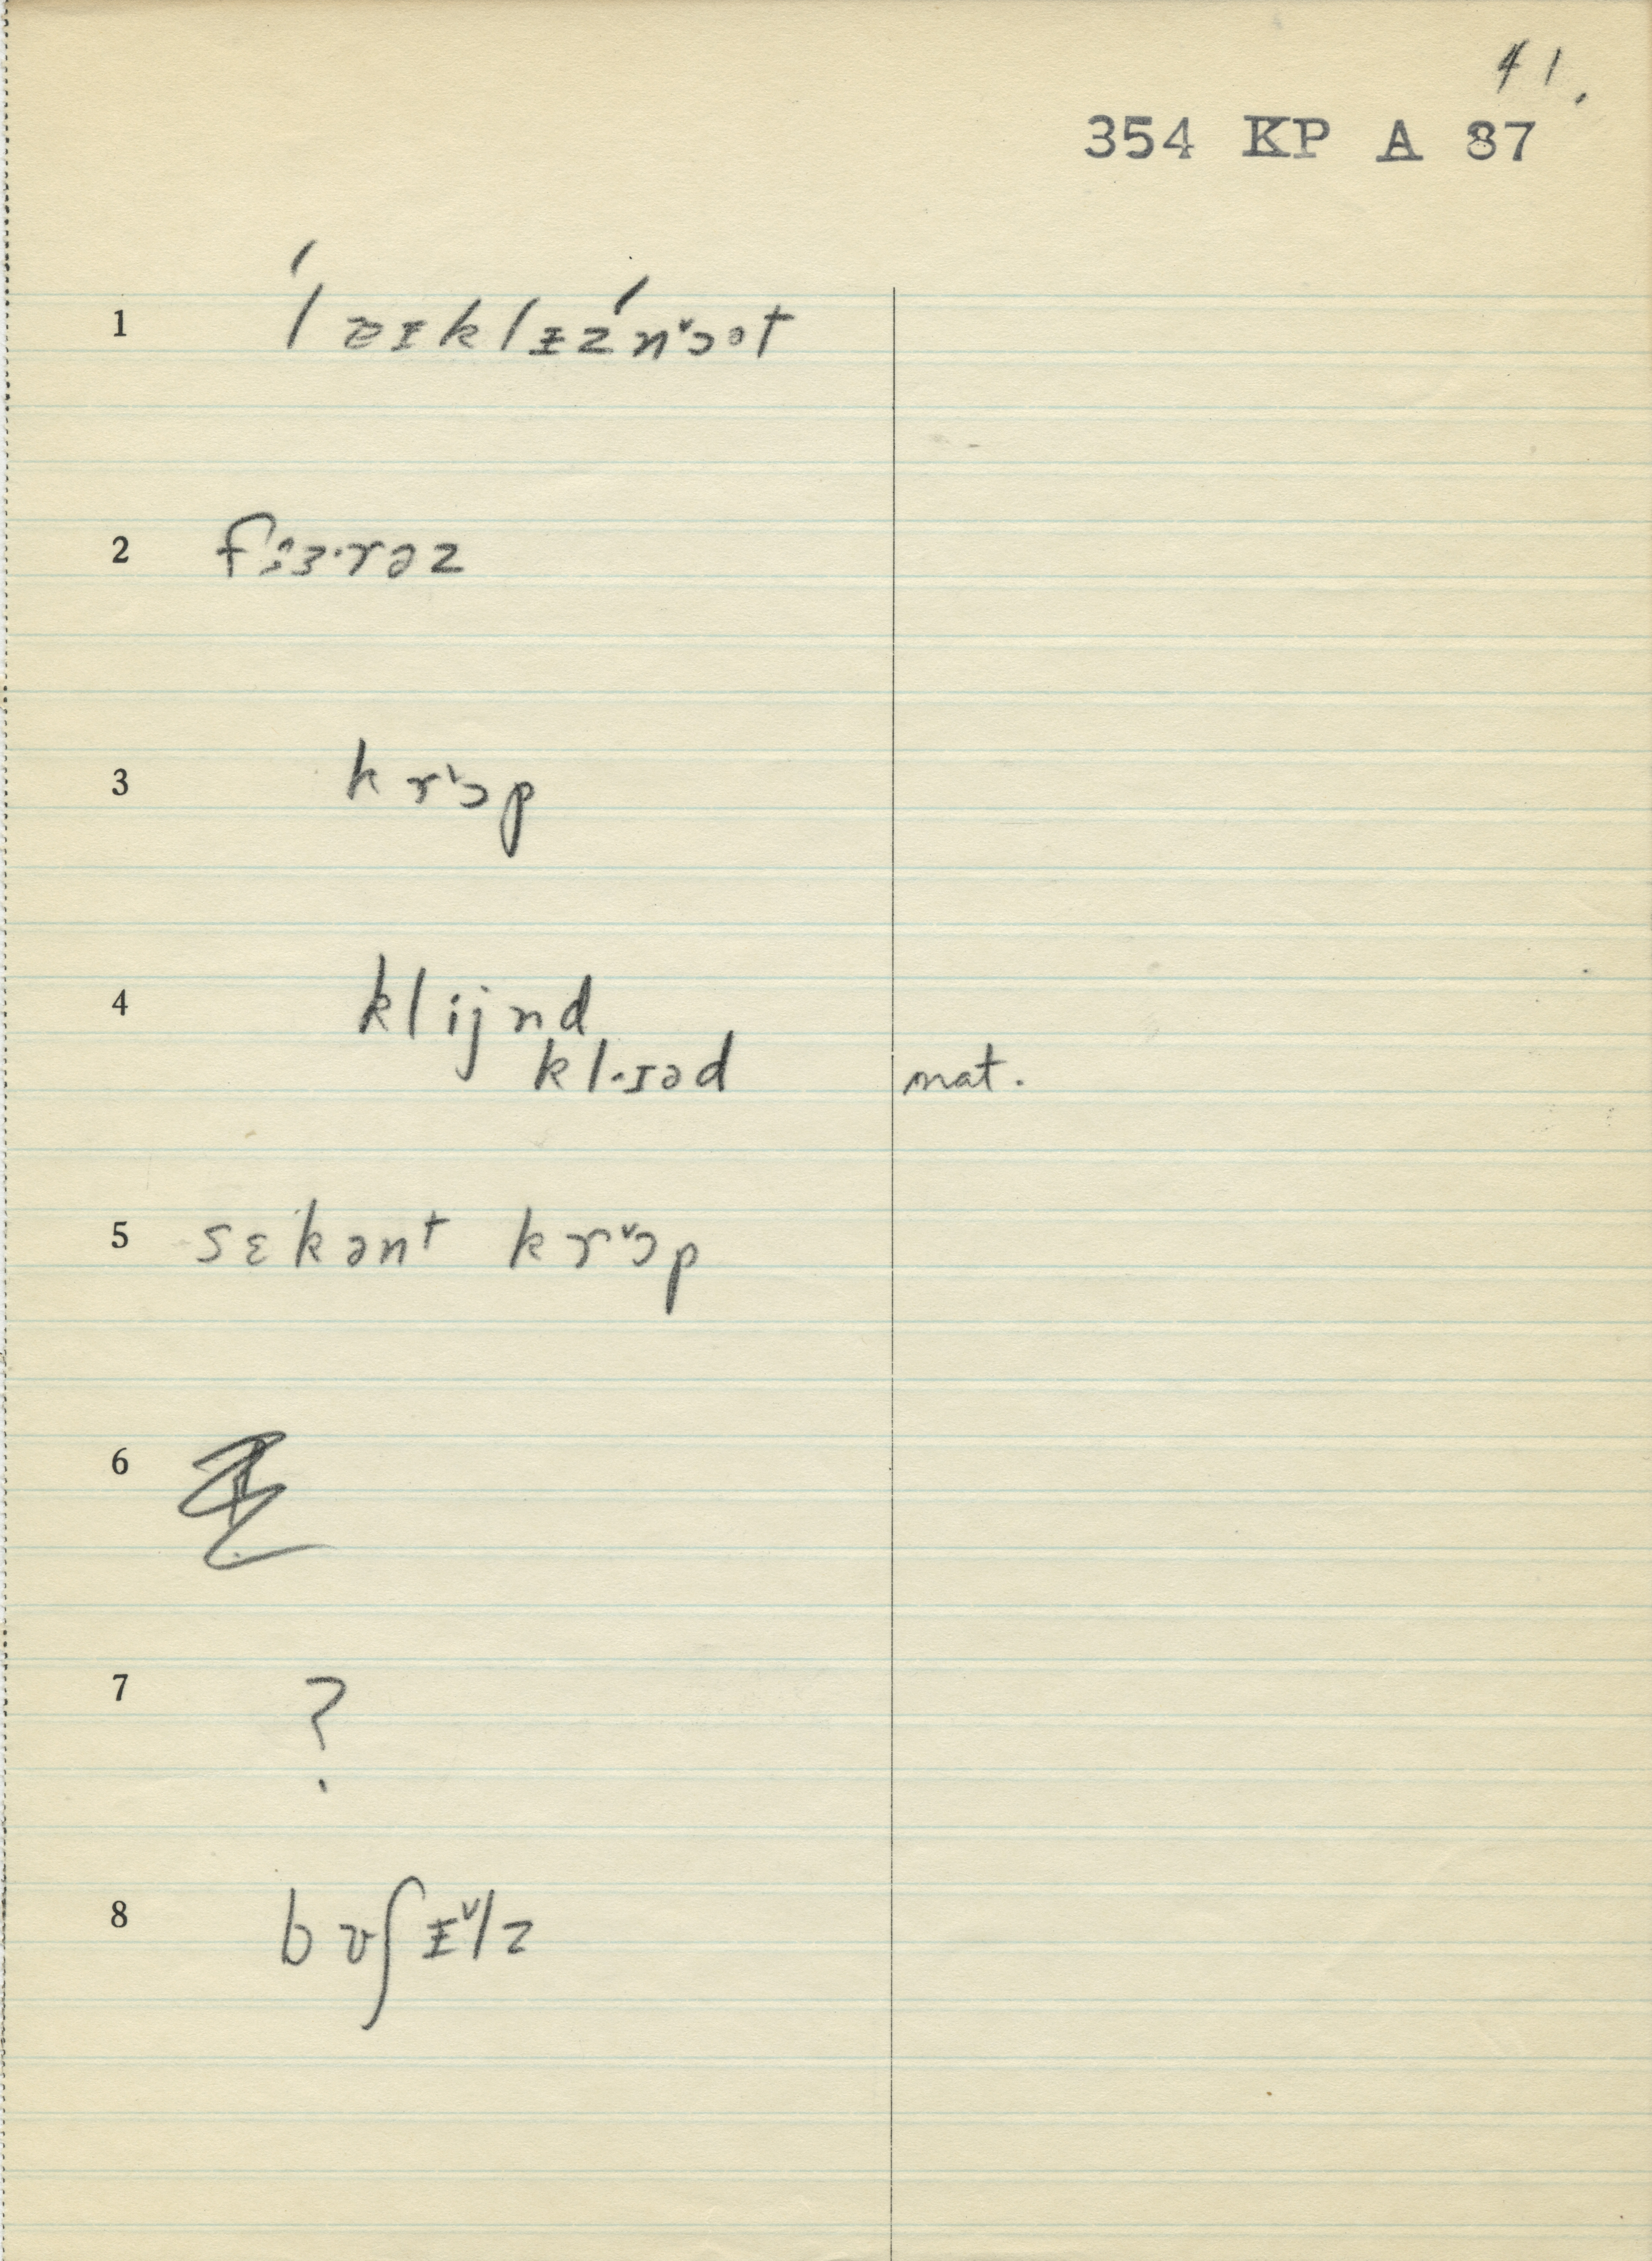 41.
354 KP A 87
1 ĺæɪklɪ̵źnˇɔət
2 fɜɜ·rəz
3 krˇɔp
4 klijnd
kl·ɪəd nat.
5 sɛkənt krˇɔp
6
7 ?
8 bʊʃɪ̵ˇlz